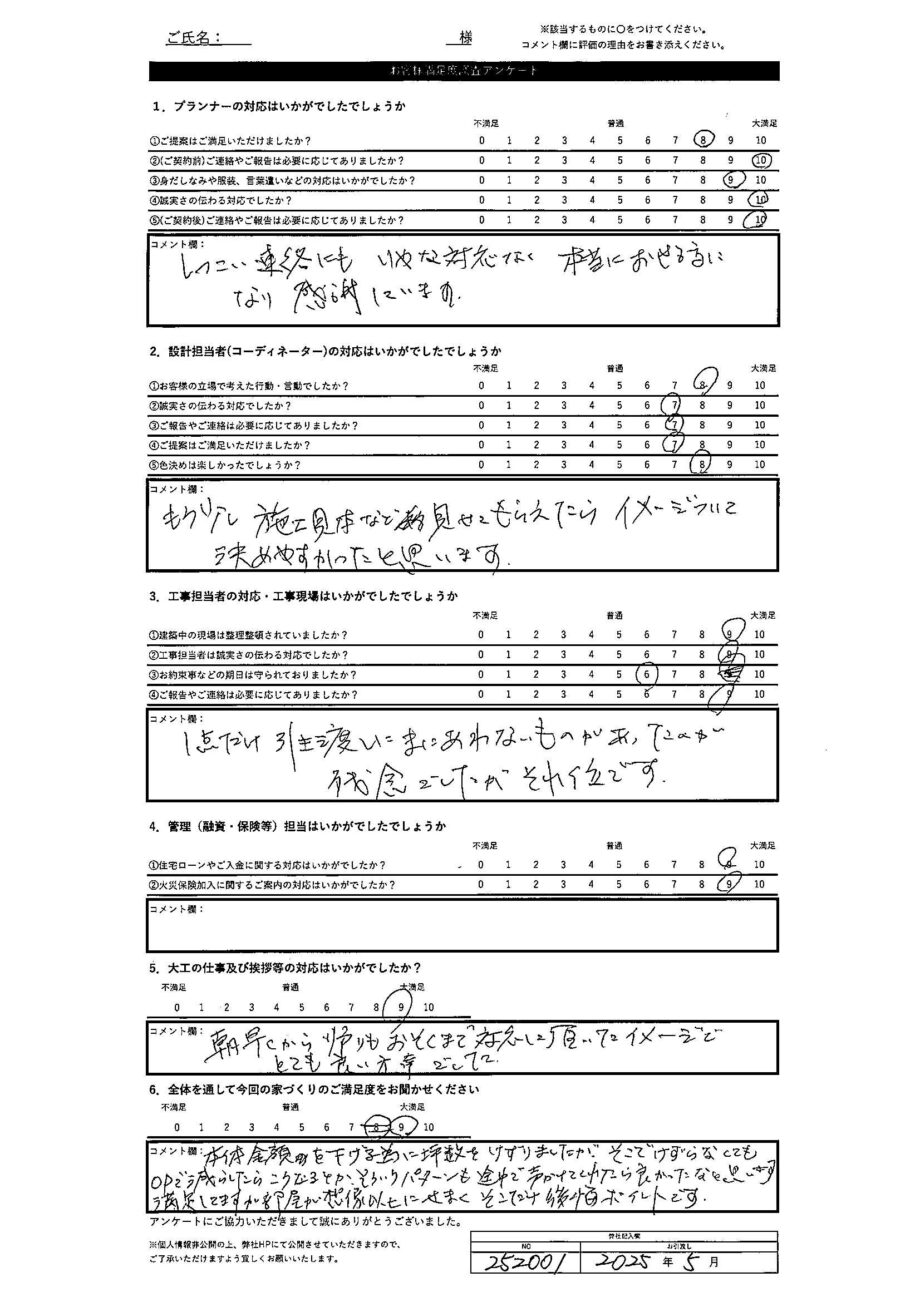 ご氏名： 様
※該当するものに○をつけてください。
コメント欄に評価の理由をお書き添えください。
お客様満足度調査アンケート
1．プランナーの対応はいかがでしたでしょうか
不満足 普通 大満足
①ご提案はご満足いただけましたか？ 0 1 2 3 4 5 6 7 8 9 10
②(ご契約前)ご連絡やご報告は必要に応じてありましたか？ 0 1 2 3 4 5 6 7 8 9 10
③身だしなみや服装、言葉遣いなどの対応はいかがでしたか？ 0 1 2 3 4 5 6 7 8 9 10
④誠実さの伝わる対応でしたか？ 0 1 2 3 4 5 6 7 8 9 10
⑤(ご契約後)ご連絡やご報告は必要に応じてありましたか？ 0 1 2 3 4 5 6 7 8 9 10
コメント欄：
しつこい連絡にも いやな対応なく 本当におせる方に
なり 感謝しています.
2．設計担当者(コーディネーター)の対応はいかがでしたでしょうか
不満足 普通 大満足
①お客様の立場で考えた行動・言動でしたか？ 0 1 2 3 4 5 6 7 8 9 10
②誠実さの伝わる対応でしたか？ 0 1 2 3 4 5 6 7 8 9 10
③ご報告やご連絡は必要に応じてありましたか？ 0 1 2 3 4 5 6 7 8 9 10
④ご提案はご満足いただけましたか？ 0 1 2 3 4 5 6 7 8 9 10
⑤色決めは楽しかったでしょうか？ 0 1 2 3 4 5 6 7 8 9 10
コメント欄：
もう少し 施工具体など 見せてもらえたら イメージついて
決めやすかったと思います.
3．工事担当者の対応・工事現場はいかがでしたでしょうか
不満足 普通 大満足
①建築中の現場は整理整頓されていましたか？ 0 1 2 3 4 5 6 7 8 9 10
②工事担当者は誠実さの伝わる対応でしたか？ 0 1 2 3 4 5 6 7 8 9 10
③お約束事などの期日は守られておりましたか？ 0 1 2 3 4 5 6 7 8 9 10
④ご報告やご連絡は必要に応じてありましたか？ 0 1 2 3 4 5 6 7 8 9 10
コメント欄：
1点だけ 引き渡しにまにあわないものがあったのが
残念でしたが それ位です.
4．管理（融資・保険等）担当はいかがでしたでしょうか
不満足 普通 大満足
①住宅ローンやご入金に関する対応はいかがでしたか？ 0 1 2 3 4 5 6 7 8 9 10
②火災保険加入に関するご案内の対応はいかがでしたか？ 0 1 2 3 4 5 6 7 8 9 10
コメント欄：
5．大工の仕事及び挨拶等の対応はいかがでしたか？
不満足 普通 大満足
0 1 2 3 4 5 6 7 8 9 10
コメント欄：
朝早くから 帰りもおそくまで 対応して頂いたイメージで
とても良い方達でした.
6．全体を通して今回の家づくりのご満足度をお聞かせください
不満足 普通 大満足
0 1 2 3 4 5 6 7 8 9 10
コメント欄：
本体金額を下げる為に坪数をけずりましたが、そこでけずらなくても
OPで減らしたらこうなるとか、そういうパターンも途中で声かけてくれたら良かったなと思います
満足してますが部屋が想像以上にせまく そこだけ後悔ポイントです.
アンケートにご協力いただきまして誠にありがとうございました。
※個人情報非公開の上、弊社HPにて公開させていただきますので、
ご了承いただけますよう宜しくお願いいたします。
弊社記入欄
NO お引渡し
252001 2025 年 5 月